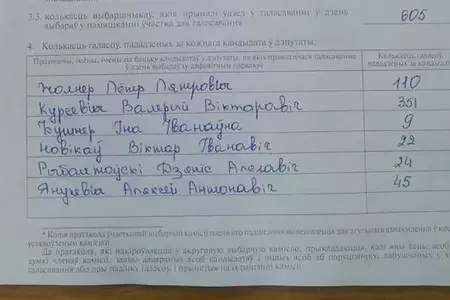 3.3. колькасць выбаршчыкаў, якія прынялі ўдзел у галасаванні ў дзень
выбараў у памяшканні участка для галасавання
605
4. Колькасць галасоў, пададзеных за кожнага кандыдата ў дэпутаты:
Прозвішчы, імёны, імёны па бацьку кандыдатаў у дэпутаты, па якіх праводзілася галасаванне
ў дзень выбараў (у алфавітным парадку)
Колькасць галасоў,
пададзеных за кандыдата
Жолнер Пётр Пятровіч 110
Курсевіч Валерый Віктаравіч 351
Кушнер Іна Іванаўна 9
Новікаў Віктар Іванавіч 22
Рыбалтоўскі Дзяніс Алегавіч 24
Янушевіч Аляксей Антонавіч 45
* Копія пратакола ўчастковай выбарчай камісіі пасля яго падпісання вывешваецца для агульнага азнаямлення ў
устаноўленым камісіяй
Да пратакола, які накіроўваецца ў акруговую выбарчую камісію, прыкладаюцца, калі яны ёсць, асоб
думкі членаў камісіі, заявы давераных асоб кандыдатаў і іншых асоб аб парушэннях, дапушчаных у х
галасавання або пры падліку галасоў, і прынятыя па іх рашэнні камісіі